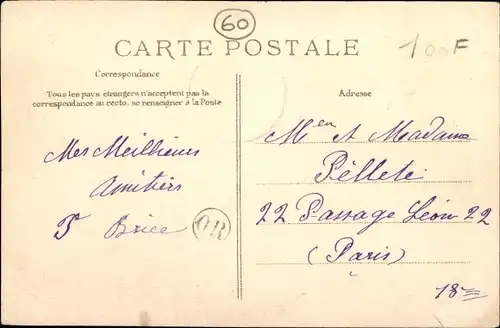 60
CARTE POSTALE
100F
Correspondance
Tous les pays étrangers n'acceptent pas la
correspondance au recto. se renseigner à la Poste
Mes Meilleures
Amitiés
Brice
OR
Adresse
Mr et Madame
Pellete
22 Passage Léon 22
(Paris)
18